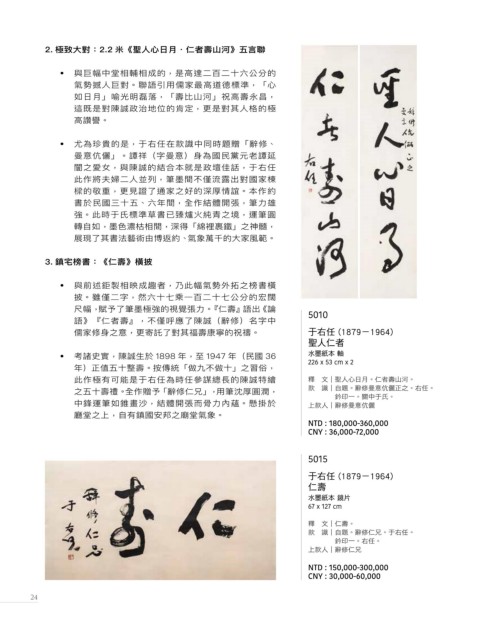 2. 極致大對：2.2 米《聖人心日月．仁者壽山河》五言聯
• 與巨幅中堂相輔相成的，是高達二百二十六公分的
氣勢撼人巨對。聯語引用儒家最高道德標準，「心
如日月」喻光明磊落，「壽比山河」祝高壽永昌，
這既是對陳誠政治地位的肯定，更是對其人格的極
高讚譽。
• 尤為珍貴的是，于右任在款識中同時題贈「辭修、
曼意伉儷」。譚祥（字曼意）身為國民黨元老譚延
闓之愛女，與陳誠的結合本就是政壇佳話，于右任
此作將夫婦二人並列，筆墨間不僅流露出對國家棟
樑的敬重，更見證了通家之好的深厚情誼。本作約
書於民國三十五、六年間，全作結體開張，筆力雄
強。此時于氏標準草書已臻爐火純青之境，運筆圓
轉自如，墨色濃枯相間，深得「綿裡裹鐵」之神髓，
展現了其書法藝術由博返約、氣象萬千的大家風範。
3. 鎮宅榜書：《仁壽》橫披
• 與前述鉅製相映成趣者，乃此幅氣勢外拓之榜書橫
披。雖僅二字，然六十七乘一百二十七公分的宏闊
尺幅，賦予了筆墨極強的視覺張力。『仁壽』語出《論
語》『仁者壽』，不僅呼應了陳誠（辭修）名字中
儒家修身之意，更寄託了對其福壽康寧的祝禱。
• 考諸史實，陳誠生於 1898 年，至 1947 年（民國 36
年）正值五十整壽。按傳統「做九不做十」之習俗，
此作極有可能是于右任為時任參謀總長的陳誠特繪
之五十壽禮。全作贈予「辭修仁兄」，用筆沈厚圓潤，
中鋒運筆如錐畫沙，結體開張而骨力內蘊。懸掛於
廳堂之上，自有鎮國安邦之廟堂氣象。
聖人心日月
仁者壽山河
右任
5010
于右任（1879－1964）
聖人仁者
水墨紙本 軸
226 x 53 cm x 2
釋　文｜聖人心日月。仁者壽山河。
款　識｜自題。辭修曼意伉儷正之。右任。
鈐印一。關中于氏。
上款人｜辭修曼意伉儷
NTD : 180,000-360,000
CNY : 36,000-72,000
仁壽
辭修仁兄
于右任
5015
于右任（1879－1964）
仁壽
水墨紙本 鏡片
67 x 127 cm
釋　文｜仁壽。
款　識｜自題。辭修仁兄。于右任。
鈐印一。右任。
上款人｜辭修仁兄
NTD : 150,000-300,000
CNY : 30,000-60,000
24